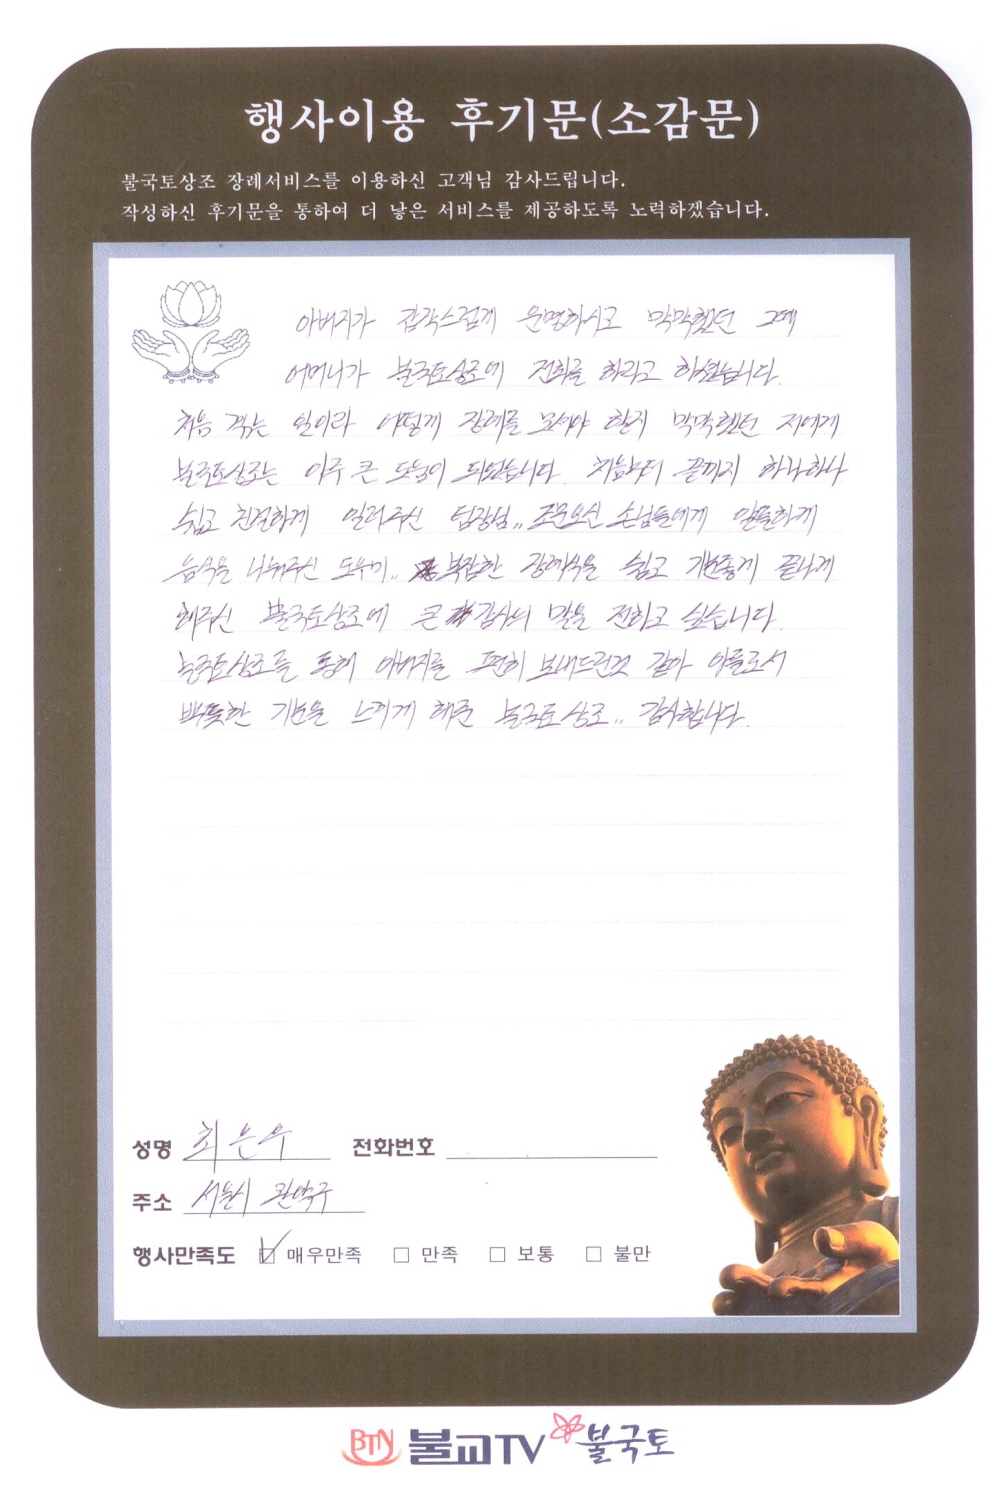 행사이용 후기문(소감문)
불국토상조 장례서비스를 이용하신 고객님 감사드립니다.
작성하신 후기문을 통하여 더 낳은 서비스를 제공하도록 노력하겠습니다.
아버지가 갑작스럽게 운명하시고 막막했던 그때
어머니가 불국토상조에 전화를 하라고 하셨습니다.
처음 겪는 일이라 어떻게 장례를 모셔야 할지 막막했던 저에게
불국토상조는 아주 큰 도움이 되었습니다. 처음부터 끝까지 하나하나
쉽고 친절하게 알려주신 팀장님,, 조문오신 손님들에게 알뜰하게
음식을 나눠주신 도우미,, 복잡한 장례식을 쉽고 기분좋게 끝나게
해주신 불국토상조에 큰 감사의 말을 전하고 싶습니다.
불국토상조를 통해 아버지를 편히 보내드린것 같아 아들로서
뿌듯한 기분을 느끼게 해준 불국토상조,, 감사합니다.
성명 최은우 전화번호
주소 서울시 관악구
행사만족도 매우만족 만족 보통 불만
BTN 불교TV 불국토